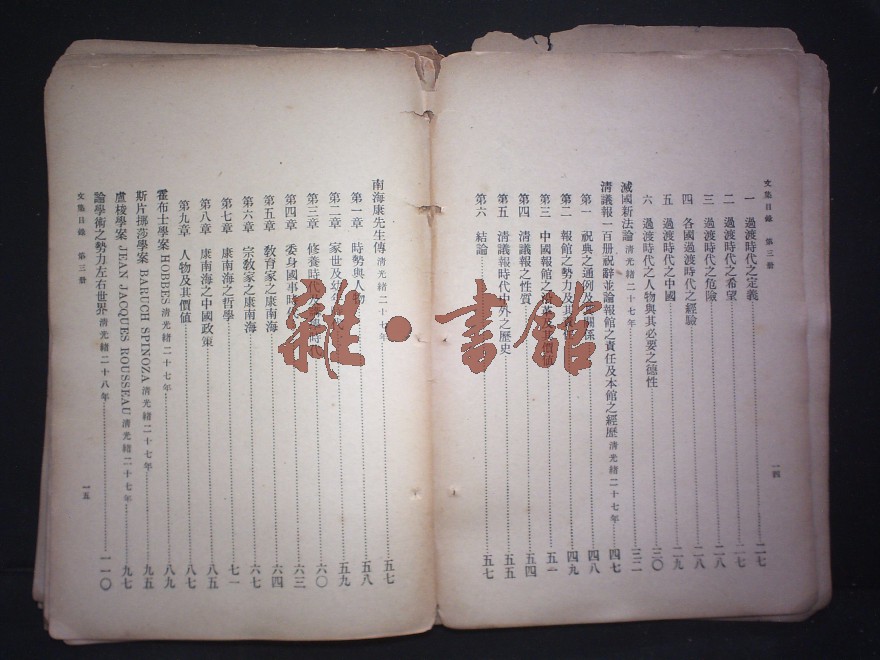 文集目錄 第三册
一 過渡時代之定義 二七
二 過渡時代之希望 二七
三 過渡時代之危險 二八
四 各國過渡時代之經驗 二八
五 過渡時代之中國 二九
六 過渡時代之人物與其必要之德性 三〇
滅國新法論 清光緒二十七年 三二
清議報一百册祝辭並論報館之責任及本館之經歷 清光緒二十七年 四七
第一 祝典之通例及其關係 四八
第二 報館之勢力及其責任 四九
第三 中國報館之 五一
第四 清議報之性質 五四
第五 清議報時代中外之歷史 五五
第六 結論 五七
一四
南海康先生傳 清光緒二十七年 五七
第一章 時勢與人物 五八
第二章 家世及幼年 五九
第三章 修養時代及 時代 六〇
第四章 委身國事時代 六三
第五章 敎育家之康南海 六四
第六章 宗敎家之康南海 六七
第七章 康南海之哲學 七一
第八章 康南海之中國政策 八五
第九章 人物及其價値 八七
霍布士學案 HOBBES 清光緒二十七年 八九
斯片挪莎學案 BARUCH SPINOZA 清光緒二十七年 九五
盧梭學案 JEAN JACQUES ROUSSEAU 清光緒二十七年 九七
論學術之勢力左右世界 清光緒二十八年 一一〇
文集目錄 第三册
一五
雜·書館